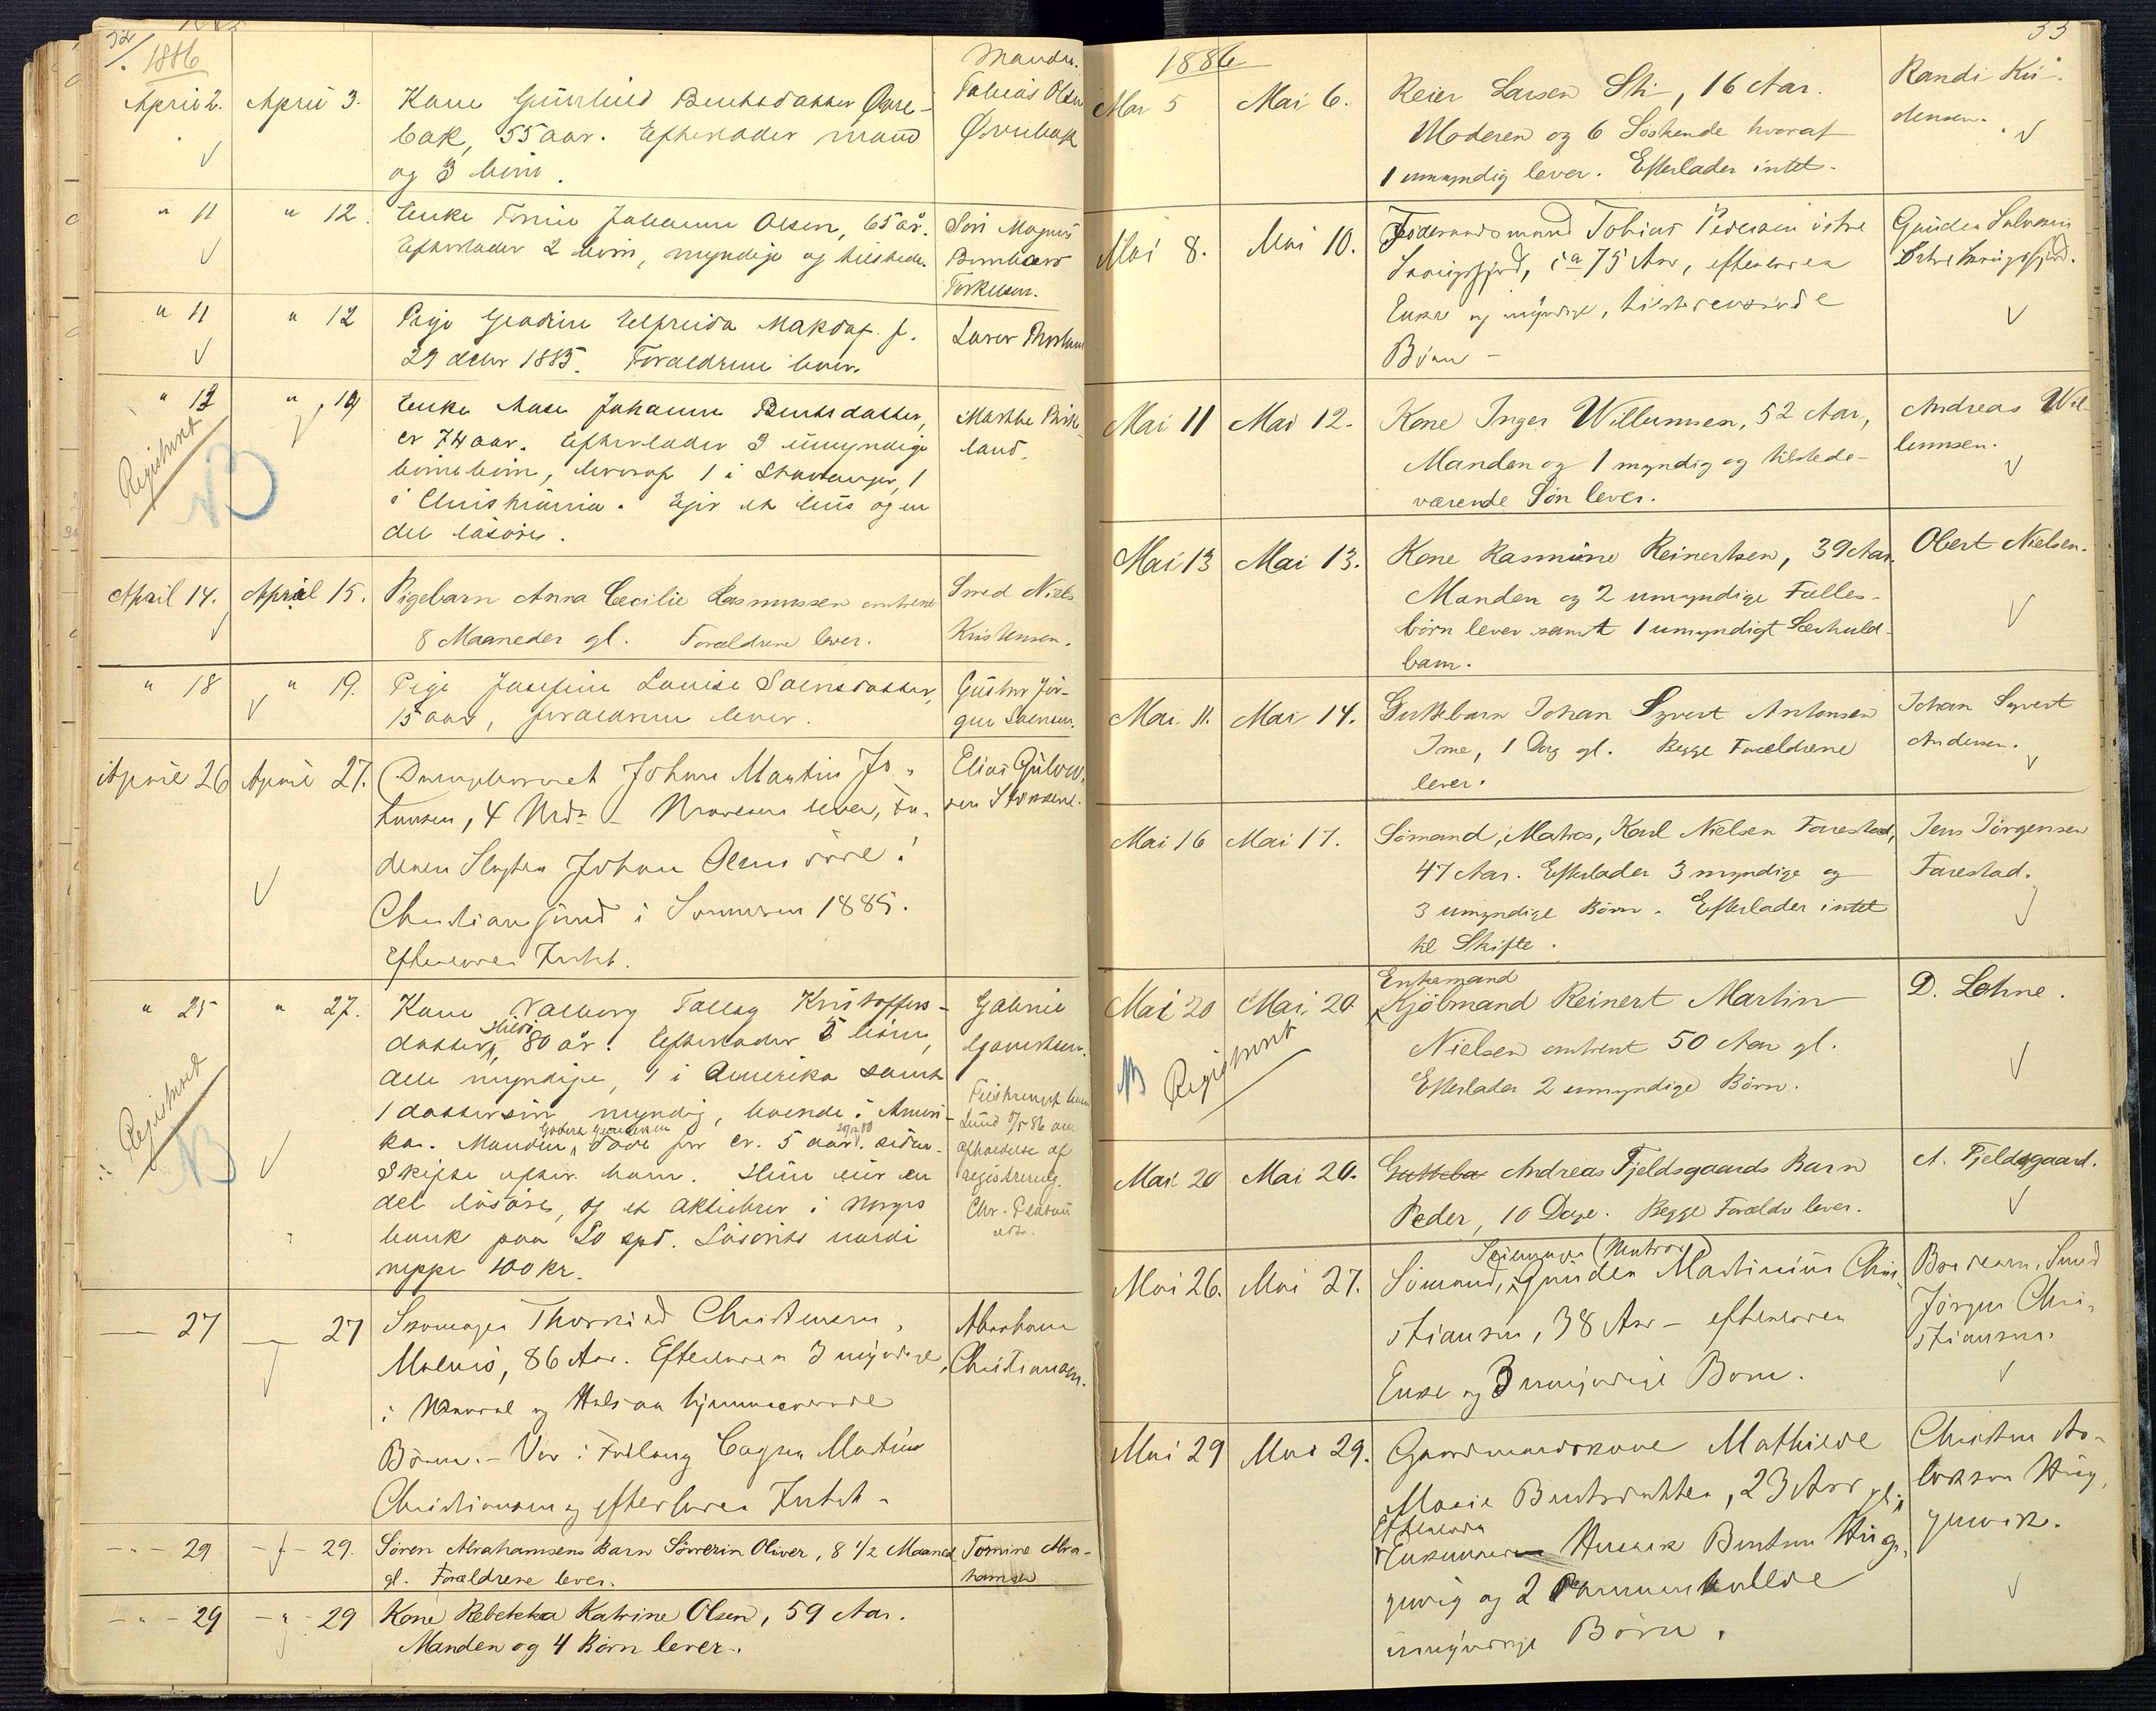 32
1886
April 2. April 3. Kone Gunhild Bentsdatter Øvre-
bak, 55 aar. Efterlader mand
og 3 børn.
Manden
Tobias Olsen
Øvrebak
" 11 " 12. Enke Tomine Johanne Olsen, 65 år.
Efterlader 2 børn, myndige og tilstede.
Søn Magnus
Bernhard
Torkelsen.
" 11 " 12 Pige Gradine Elfrida Makdaf. f.
29 decbr 1885. Forældrene lever.
Lars
" 13 " 14 Enke Aase Johanne Bentsdatter,
cr 74 aar. Efterlader 3 umyndige
børnebørn, hvoraf 1 i Stavanger, 1
i Christiania. Ejer et hus og en
del løsøre.
Marthe Birke-
land.
Registreret
NB
April 14. April 15. Pigebarn Anna Cecilie Rasmussen omtrent
8 Maaneder gl. Forældrene lever.
Smed Niels
Kristensen.
" 18 " 19. Pige Josefine Louise Svensdatter,
15 aar, forældrene lever.
Gustav Jør-
gen Svensen.
April 26 April 27. Drengebarnet Johan Martin Jo-
hansen, 4 Mdr - Moderen lever, Fa-
deren Slagter Johan Olsen døde i
Christianssund i Sommeren 1885.
Efterlader Intet.
Elias
" 25 " 27. Kone Valborg Tallag Kristoffers-
datter, 80 år. Efterlader 5 børn,
alle myndige, 1 i Amerika samt
1 dattersøn, myndig, boende i Ameri-
ka. Manden, døde for cr. 5 aar siden.
Skifte efter ham. Hun eier en
del løsøre, og et aktiebrev i Norges
bank paa 50 spd. Løsørets værdi
neppe 100 kr.
Gabriel
registrering.
Registreret
NB
27 27 Skomager Christensen,
Malmø, 86 Aar. Efterlader 3 myndige,
i Mandal og Halsaa hjemmeværende
Børn. - Var i Forlang Martin
Christiansen og efterlader Intet -
Abraham
Christiansen.
- " - 29 - " - 29. Søren Abrahamsens Barn Søverin Oliver, 8 1/2 Maaned
gl. Forældrene lever.
Tomine Abra-
hamsen
- " - 29 - " - 29 Kone Rebekka Katrine Olsen, 59 Aar.
Manden og 4 Børn lever.
33
1886
Mai 5 Mai 6. Reier Larsen Sti, 16 Aar.
Moderen og 6 Søskende hvoraf
1 umyndig lever. Efterlader intet.
Randi
Mai 8. Mai 10. Føderaadsmand Tobias Pedersen østre
ca 75 Aar, efterlader
Enke og myndige, tilstedeværende
Børn -
Gunder Salvesen
Mai 11 Mai 12. Kone Inger Willumsen, 52 Aar,
Manden og 1 myndig og tilstede-
værende Søn lever.
Andreas Wil-
lumsen.
Mai 13 Mai 13. Kone Rasmine Reinertsen, 39 Aar.
Manden og 2 umyndige Fælles-
børn lever samt 1 umyndigt Særkuld-
barn.
Obert Nielsen.
Mai 11. Mai 14. Guttebarn Johan Syvert Antonsen
Ime, 1 Dag gl. Begge Forældrene
lever.
Johan Syvert
Andersen.
Mai 16 Mai 17. Sømand, Matros, Karl Nielsen Farestad,
47 Aar. Efterlader 3 myndige og
3 umyndige Børn. Efterlader intet
til Skifte.
Jens Jörgensen
Farestad.
Mai 20 Mai 20. Enkemand
Kjöbmand Reinert Martin
Nielsen omtrent 50 Aar gl.
Efterlader 2 umyndige Børn.
D. Lohne.
NB Registreret
Mai 20 Mai 20. Gutteba Andreas Fjeldsgaards Barn
Peder, 10 Dage. Begge Forældre lever.
A. Fjeldsgaard.
Mai 26. Mai 27. (Matros)
Sømand, Gunder Martinius Chri-
stiansen, 38 Aar - efterlader
Enke og 3 umyndige Børn.
Broderen, Smed
Jörgen Chri-
stiansen.
Mai 29 Mai 29. Gaardmandskone Mathilde
Marie Bentsdatter, 23 Aar gl.;
Efterlader
Enkemand Henrik Bentsen
og 2 sammenkuldde
umyndige Børn.
Christen